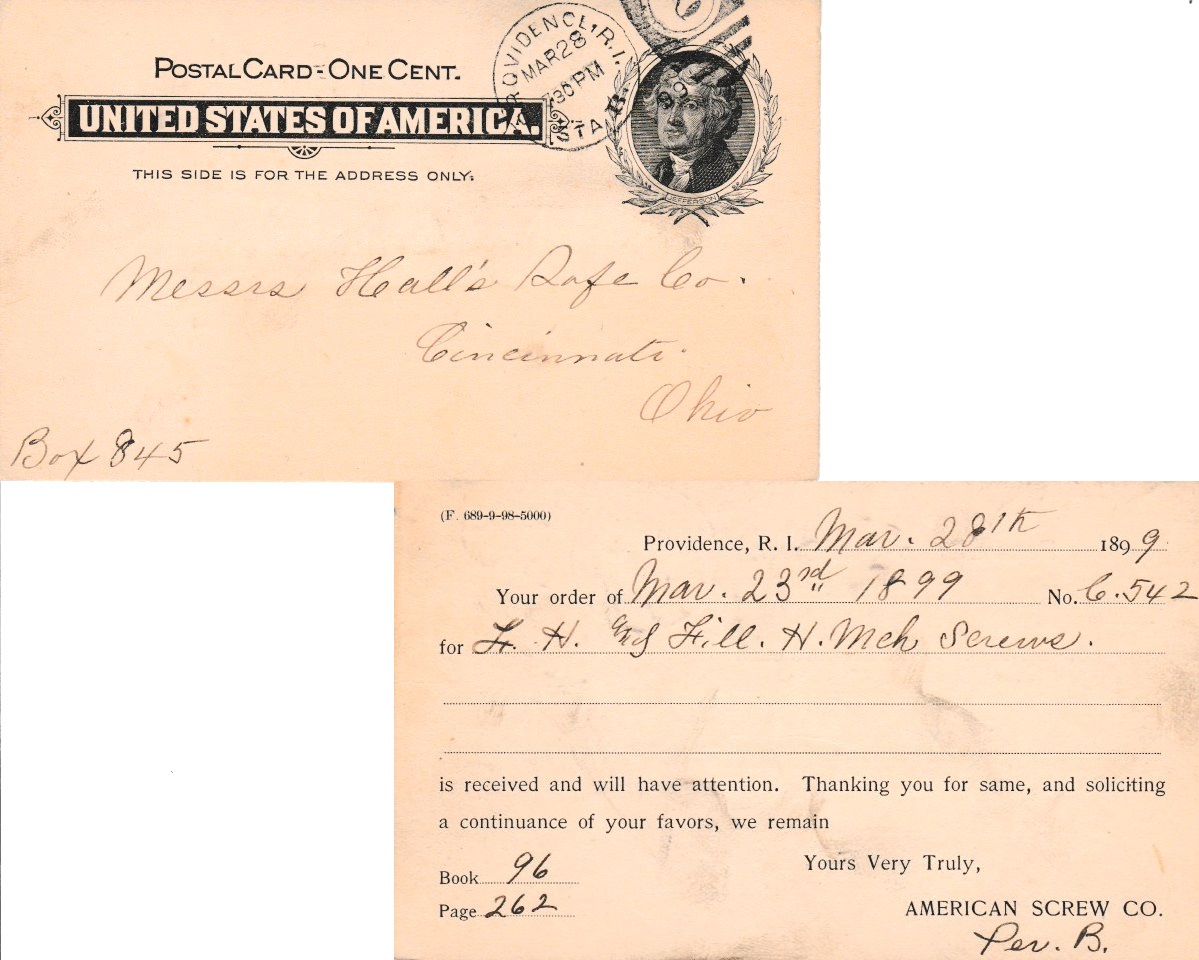 POSTAL CARD - ONE CENT.
UNITED STATES OF AMERICA.
THIS SIDE IS FOR THE ADDRESS ONLY.
PROVIDENCE, R.I.
MAR 28
30 PM
99
STA. B.
JEFFERSON
Messrs Hall's Safe Co.
Cincinnati.
Ohio
Box 845
(F. 689-9-98-5000)
Providence, R. I. Mar. 28th 1899
Your order of Mar. 23rd 1899 No. C.542
for F. H. & Fill. H. Mch Screws.
is received and will have attention. Thanking you for same, and soliciting
a continuance of your favors, we remain
Yours Very Truly,
Book 96
Page 262
AMERICAN SCREW CO.
Per. B.